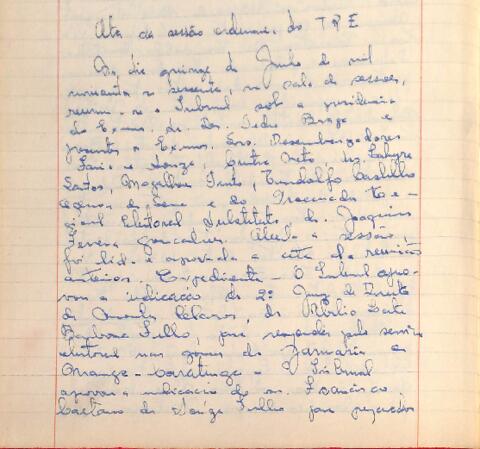 Ata da sessão ordinária do TRE
Ao dia quinze de Junho de mil
novecentos e sessenta, na sala de sessões,
reuniu-se o Tribunal sob a presidência
do Exmo. Sr. Des. Pedro Braga e
presentes os Exmos. Srs. Desembargadores
Faria e Souza, Neto, drs.
Santos, Magalhães Pinto,
e do Procurador Re-
gional Eleitoral Substituto dr. Joaquim
Ferreira Gonçalves. Aberta a sessão,
foi lida e aprovada a ata da reunião
anterior. Expediente - O Tribunal apro-
vou a indicação do 2º Juiz de Direito
de Montes Claros, dr.
Barbosa Fello, para responder pelo serviço
eleitoral nas zonas de Januária e
Manga - Caratinga - O Tribunal
aprovou a indicação do sr. Francisco
Caetano de Souza Fello para